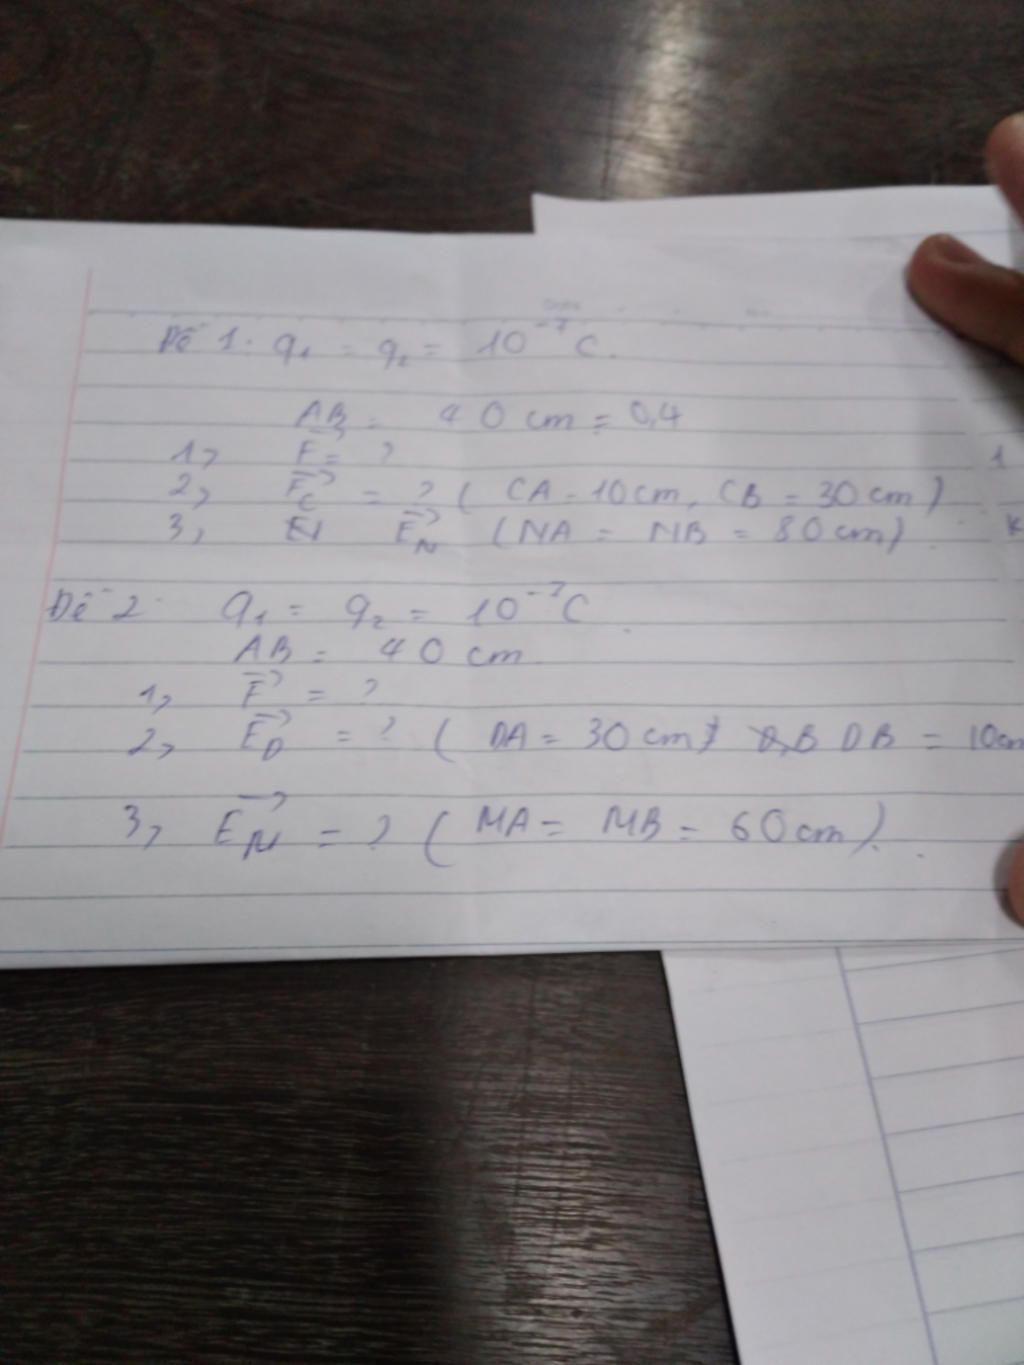 Đề 1: q₁ = q₂ = 10⁻⁷ C.
AB = 40 cm = 0,4
1, F⃗ = ?
2, F⃗_C = ? ( CA = 10 cm, CB = 30 cm )
3, E⃗_N ( NA = NB = 80 cm ).
Đề 2: q₁ = q₂ = 10⁻⁷ C.
AB = 40 cm
1, F⃗ = ?
2, E⃗_D = ? ( DA = 30 cm DB = 10 cm
3, E⃗_M = ? ( MA = MB = 60 cm ).